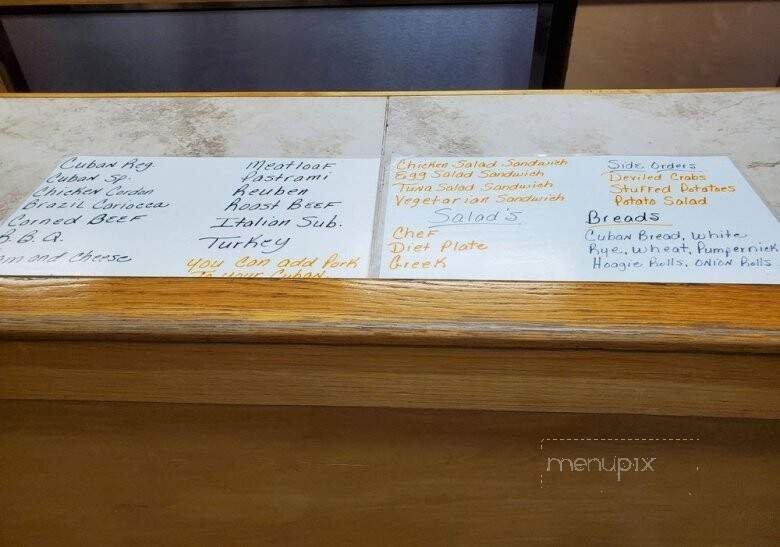 Cuban Reg
Cuban Sp.
Chicken Cordon
Brazil Cariocca
Corned Beef
B.B.Q.
and cheese
Meatloaf
Pastrami
Reuben
Roast Beef
Italian Sub.
Turkey
You can add Pork
To your Cuban
Chicken Salad Sandwich
Egg Salad Sandwich
Tuna Salad Sandwich
Vegetarian Sandwich
Salad's
Chef
Diet Plate
Greek
Side Orders
Deviled Crabs
Stuffed Potatoes
Potato Salad
Breads
Cuban Bread, White
Rye, Wheat, Pumpernick
Hoagie Rolls, Onion Rolls
menupix